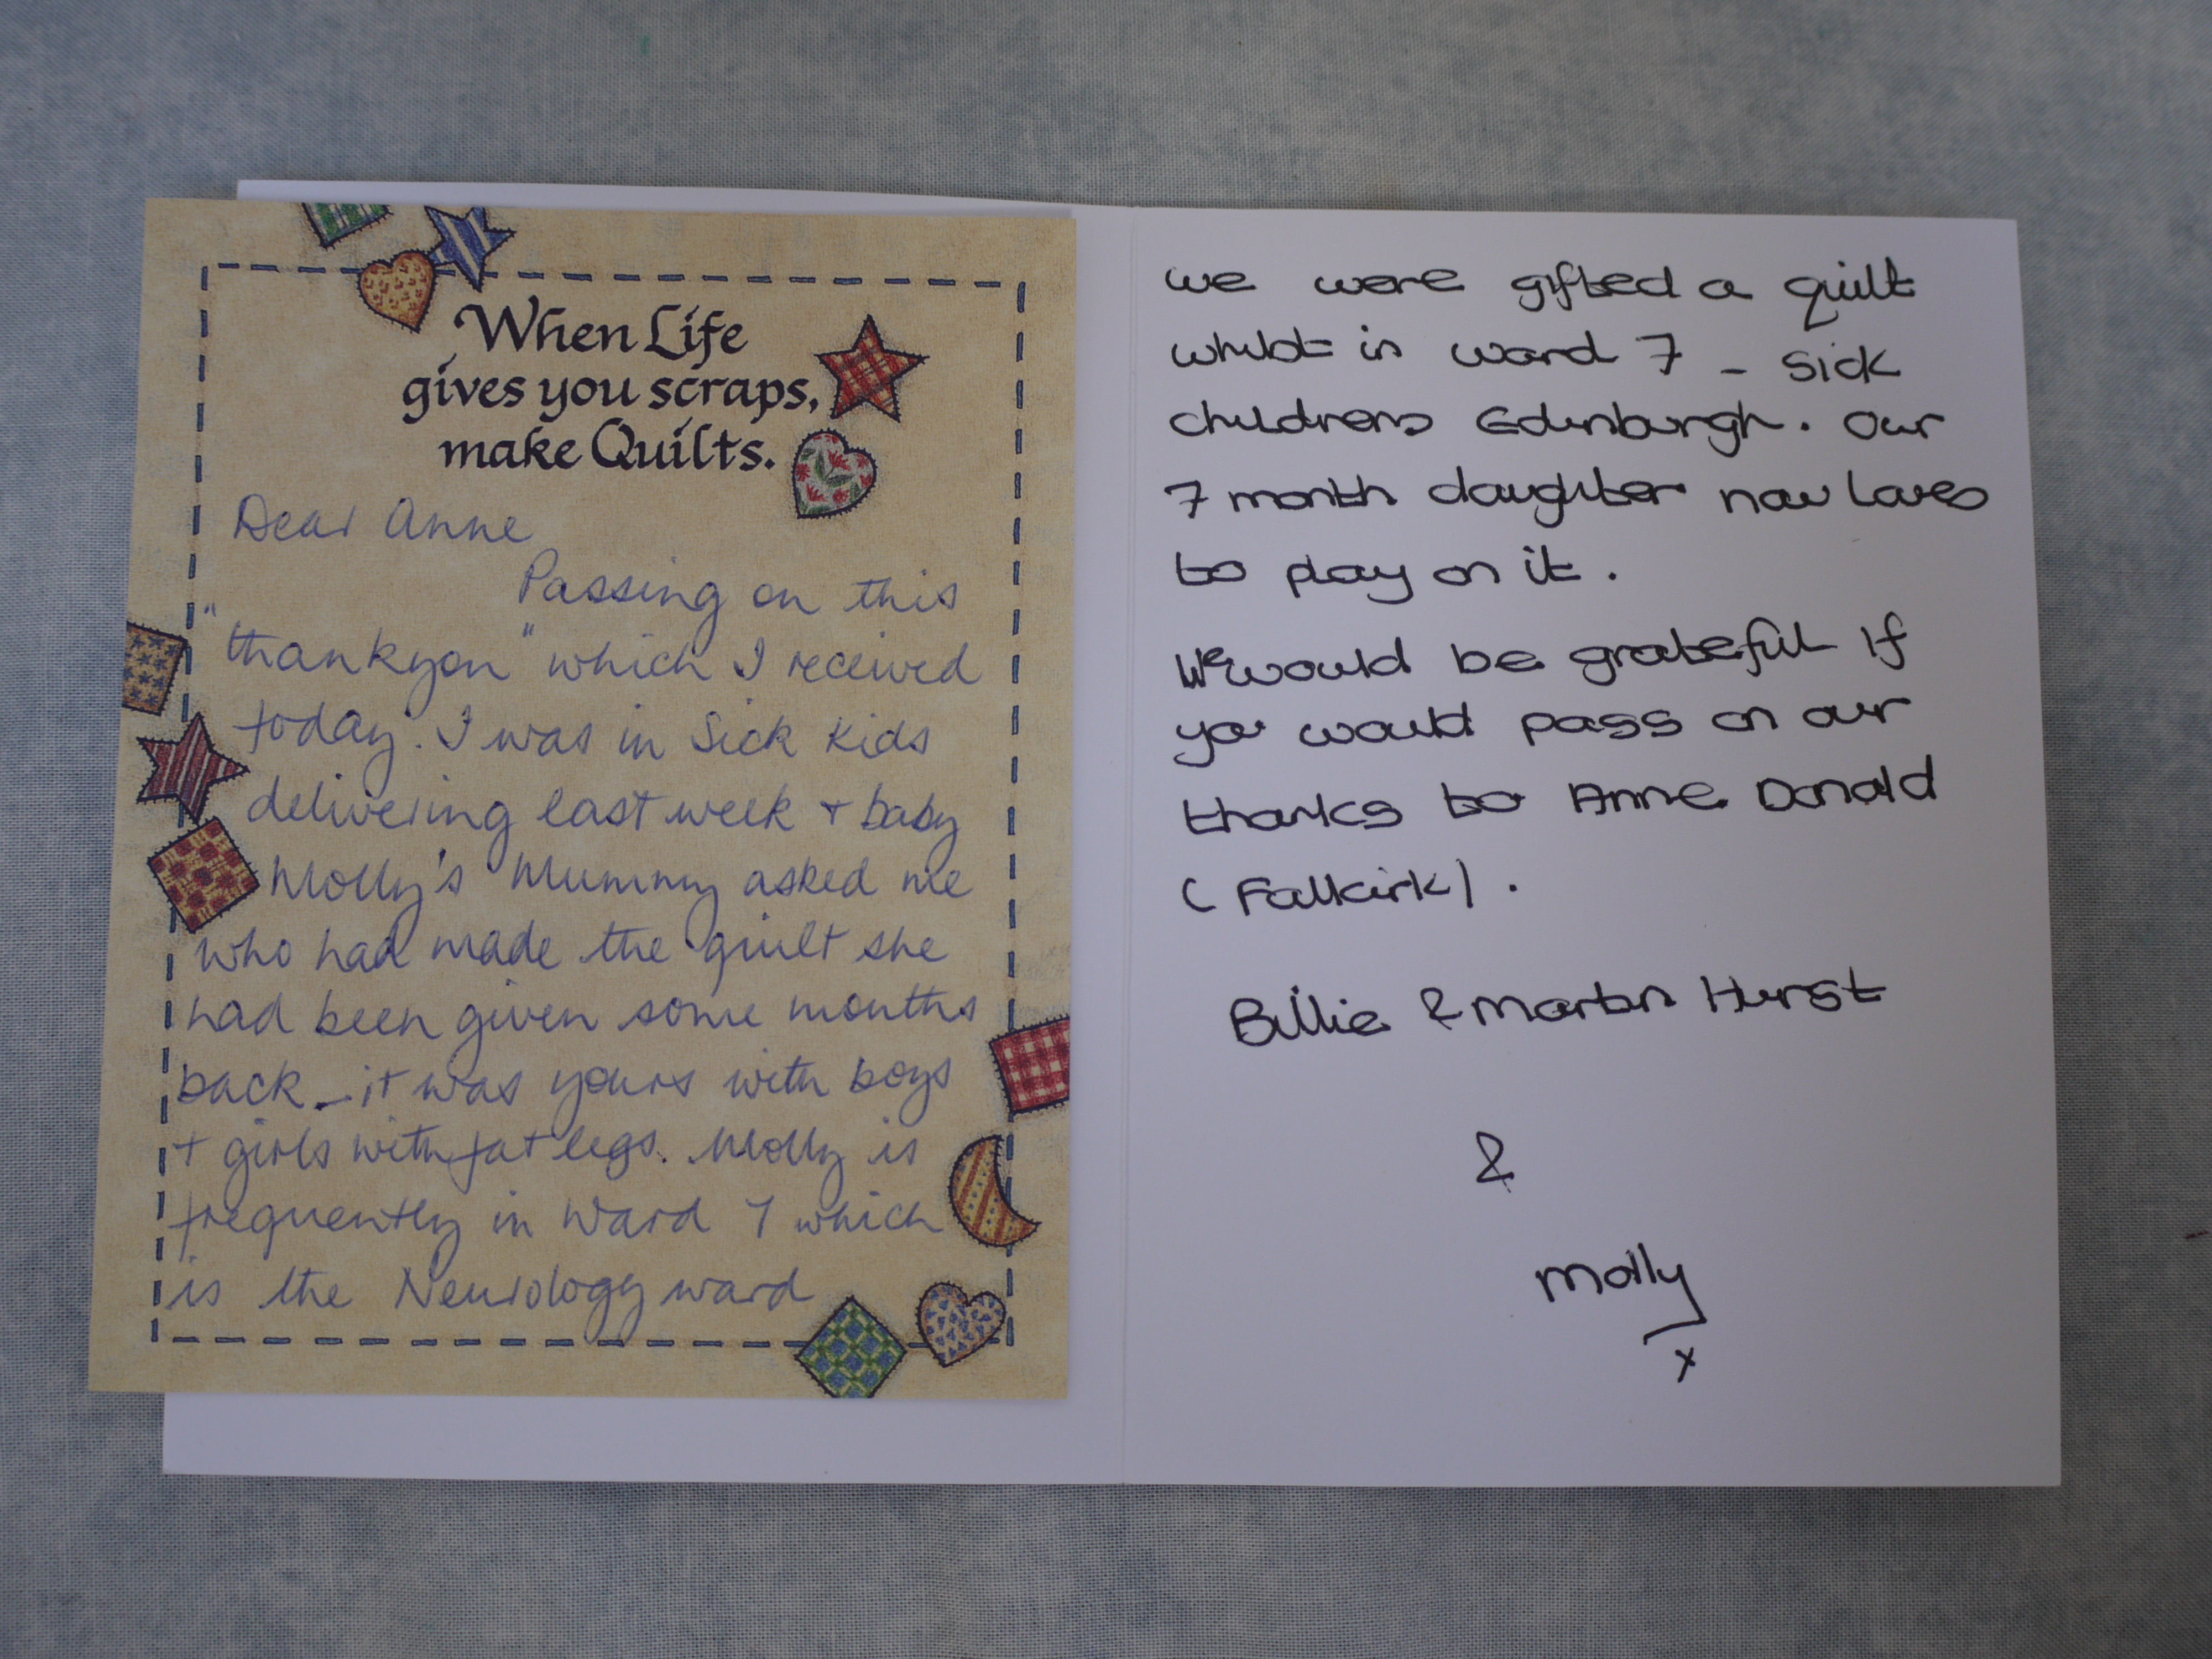 When Life
gives you scraps,
make Quilts.
Dear Anne
Passing on this
"thankyou" which I received
today. I was in Sick Kids
delivering last week + baby
Molly's Mummy asked me
who had made the quilt she
had been given some months
back - it was yours with boys
+ girls with fat legs. Molly is
frequently in Ward 7 which
is the Neurology ward
we were gifted a quilt
whilst in ward 7 - Sick
childrens Edinburgh. Our
7 month daughter now loves
to play on it.
We would be grateful if
you would pass on our
thanks to Anne Donald
(Falkirk).
Billie & Martin Hurst
&
Molly
x